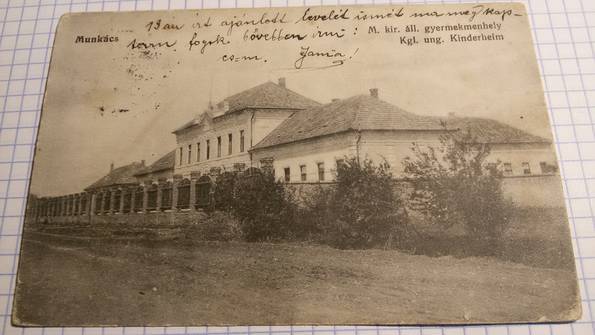 13 án írt ajánlott levelét ismét ma meg kap-
Munkács
tam, fogok bővebben írni! M. kir. áll. gyermekmenhely
Kgl. ung. Kinderheim